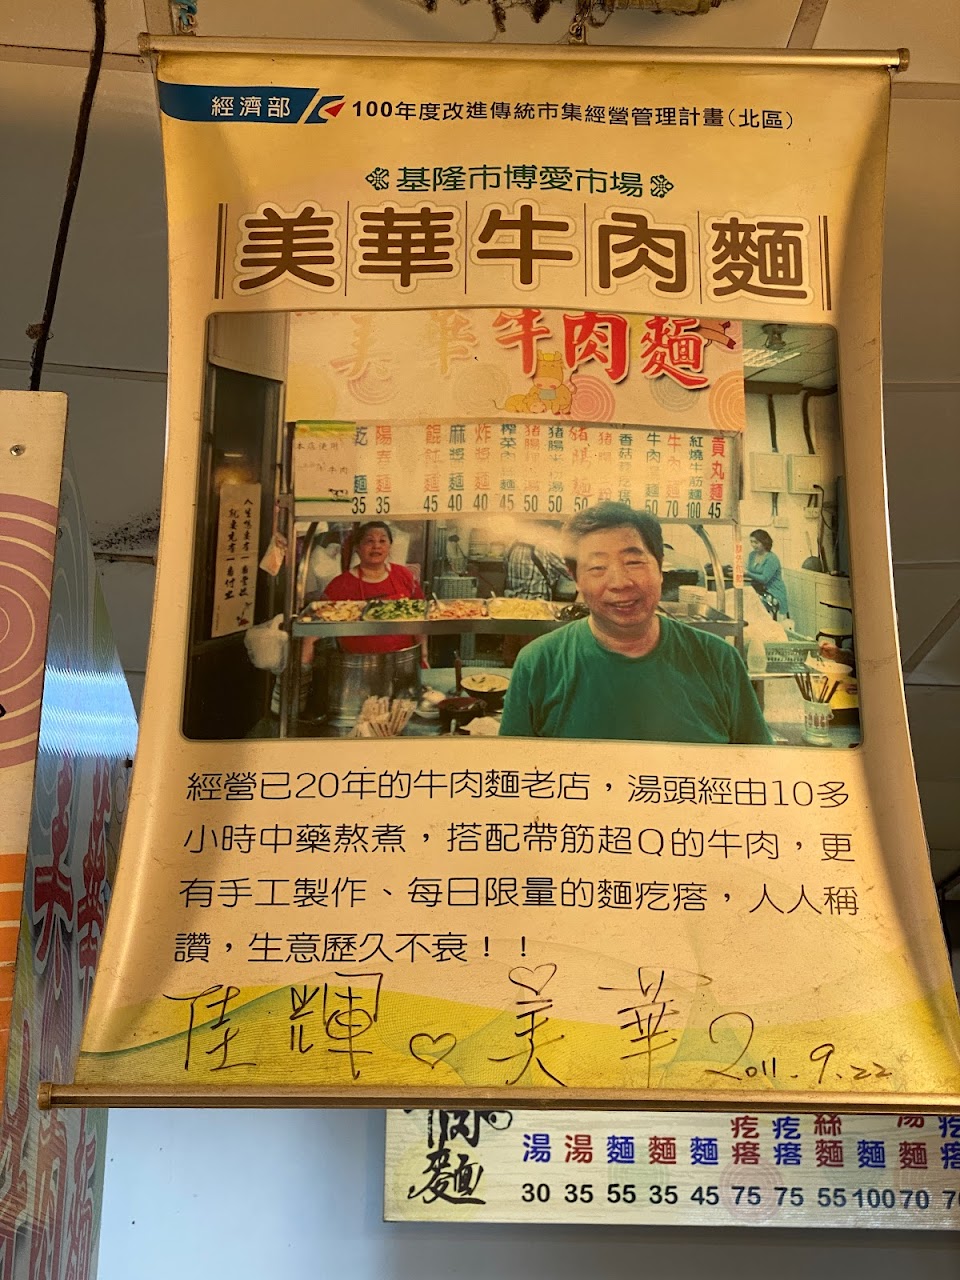 經濟部 100年度改進傳統市集經營管理計畫(北區)
基隆市博愛市場
美華牛肉麵
美華牛肉麵
本店使用
牛肉
乾麵 35
陽春麵 35
餛飩麵 45
麻醬麵 40
炸醬麵 40
榨菜肉絲麵 45
50
50
50
50
牛肉湯麵 50
牛肉麵 70
紅燒牛筋麵 100
貢丸麵 45
經營已20年的牛肉麵老店,湯頭經由10多
小時中藥熬煮,搭配帶筋超Q的牛肉,更
有手工製作、每日限量的麵疙瘩,人人稱
讚,生意歷久不衰!!
佳輝♡美華 2011.9.22
肉麵
湯 湯 麵 麵 麵 疙瘩 疙瘩 絲麵 麵 湯麵 疙瘩
30 35 55 35 45 75 75 55 100 70